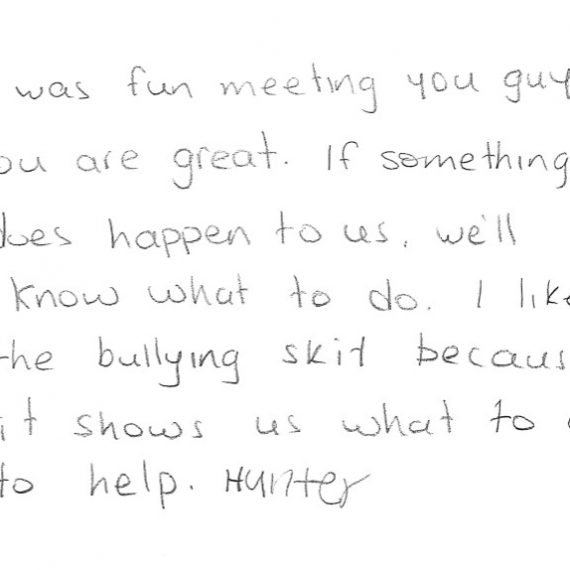 was fun meeting you guy
ou are great. If something
does happen to us, we'll
know what to do. I like
the bullying skit becaus
it shows us what to
to help. Hunter